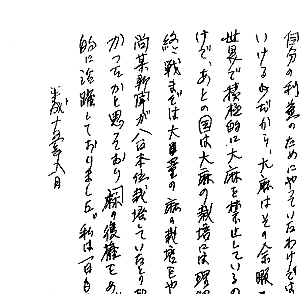 自分の利益のためにやっていたわけでは
いけるのだから、大麻はその余暇
世界で積極的に大麻を禁止しているの
けで、あとの国は大麻の栽培には理
終、戦までは大量の麻の栽培をや
尚某新聞が八日本位栽培していたとの
かったかと思ており麻の復権をめ
的に活躍しておりました。私は一日も
平成十五年六月